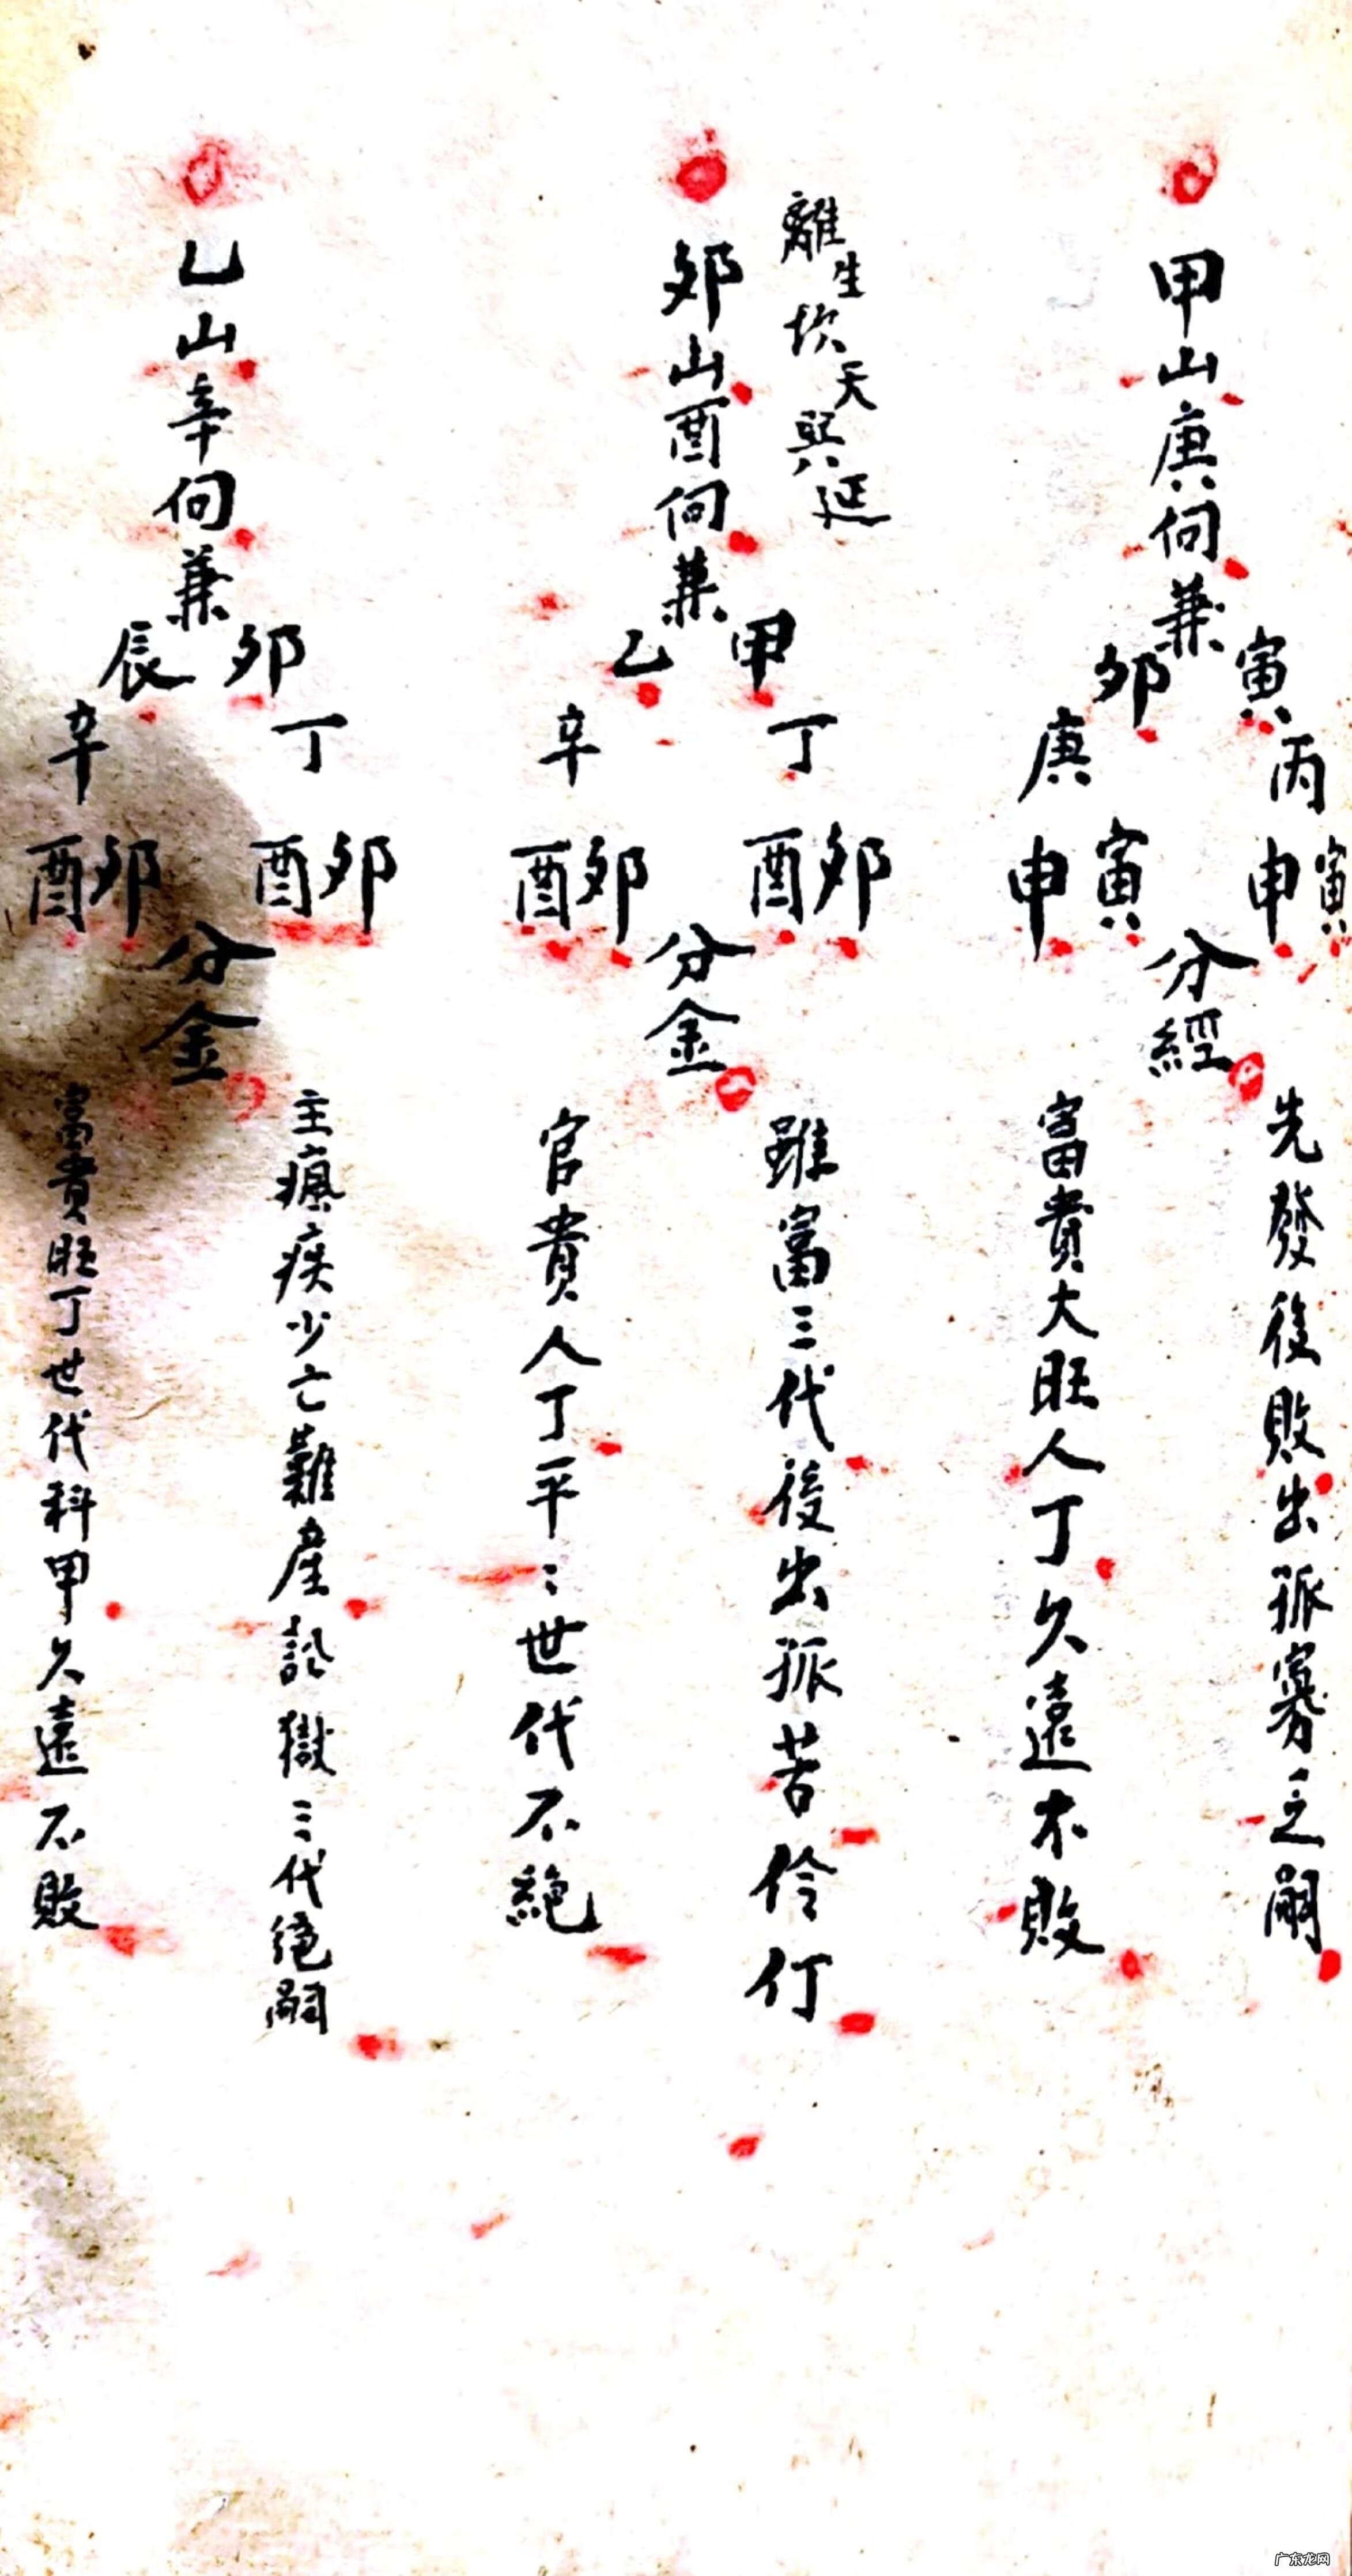 甲山庚向兼
寅
丙
寅申
卯
庚
寅申
分經
先發後敗出孤寡乏嗣
富貴大旺人丁久遠不敗
離生坎天巽延
卯山酉向兼
甲
丁
卯酉
乙
辛
卯酉
分金
雖富三代後出孤苦伶仃
官貴人丁平〻世代不絕
乙山辛向兼
卯
丁
卯酉
辰
辛
卯酉
分金
主瘋疾少亡難產訟獄三代絕嗣
富貴旺丁世代科甲久遠不敗
广东龙网